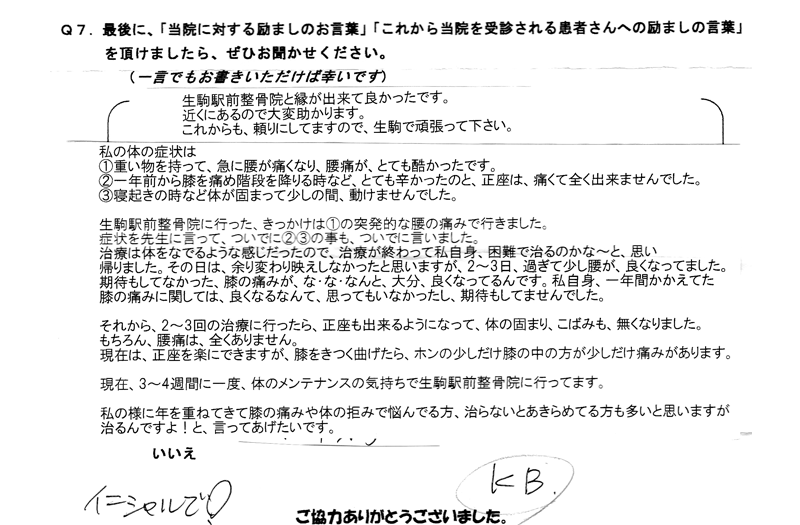 Ｑ７．最後に、「当院に対する励ましのお言葉」「これから当院を受診される患者さんへの励ましの言葉」
を頂けましたら、ぜひお聞かせください。
（一言でもお書きいただけば幸いです）
生駒駅前整骨院と縁が出来て良かったです。
近くにあるので大変助かります。
これからも、頼りにしてますので、生駒で頑張って下さい。
私の体の症状は
①重い物を持って、急に腰が痛くなり、腰痛が、とても酷かったです。
②一年前から膝を痛め階段を降りる時など、とても辛かったのと、正座は、痛くて全く出来ませんでした。
③寝起きの時など体が固まって少しの間、動けませんでした。
生駒駅前整骨院に行った、きっかけは①の突発的な腰の痛みで行きました。
症状を先生に言って、ついでに②③の事も、ついでに言いました。
治療は体をなでるような感じだったので、治療が終わって私自身、困難で治るのかな～と、思い
帰りました。その日は、余り変わり映えしなかったと思いますが、２～３日、過ぎて少し腰が、良くなってました。
期待もしてなかった、膝の痛みが、な・な・なんと、大分、良くなってるんです。私自身、一年間かかえてた
膝の痛みに関しては、良くなるなんて、思ってもいなかったし、期待もしてませんでした。
それから、２～３回の治療に行ったら、正座も出来るようになって、体の固まり、こばみも、無くなりました。
もちろん、腰痛は、全くありません。
現在は、正座を楽にできますが、膝をきつく曲げたら、ホンの少しだけ膝の中の方が少しだけ痛みがあります。
現在、３～４週間に一度、体のメンテナンスの気持ちで生駒駅前整骨院に行ってます。
私の様に年を重ねてきて膝の痛みや体の拒みで悩んでる方、治らないとあきらめてる方も多いと思いますが
治るんですよ！と、言ってあげたいです。
いいえ
イニシャルで
KB.
ご協力ありがとうございました。